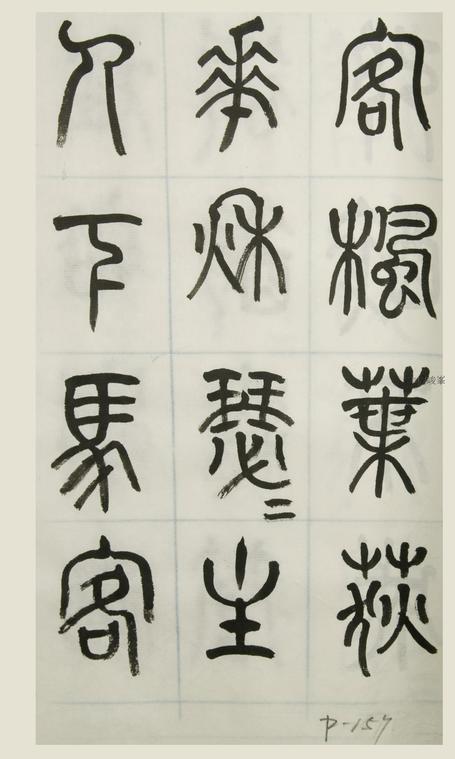 客楓葉荻
華秋瑟二主
人下馬客
P-157